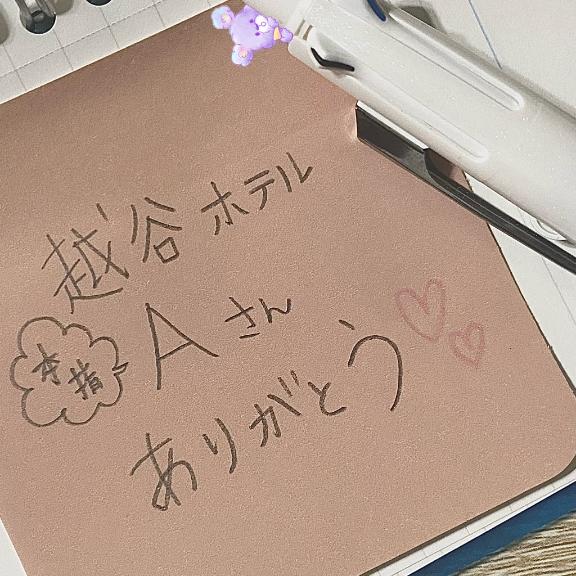 越谷 ホテル
本指
Aさん
ありがとう